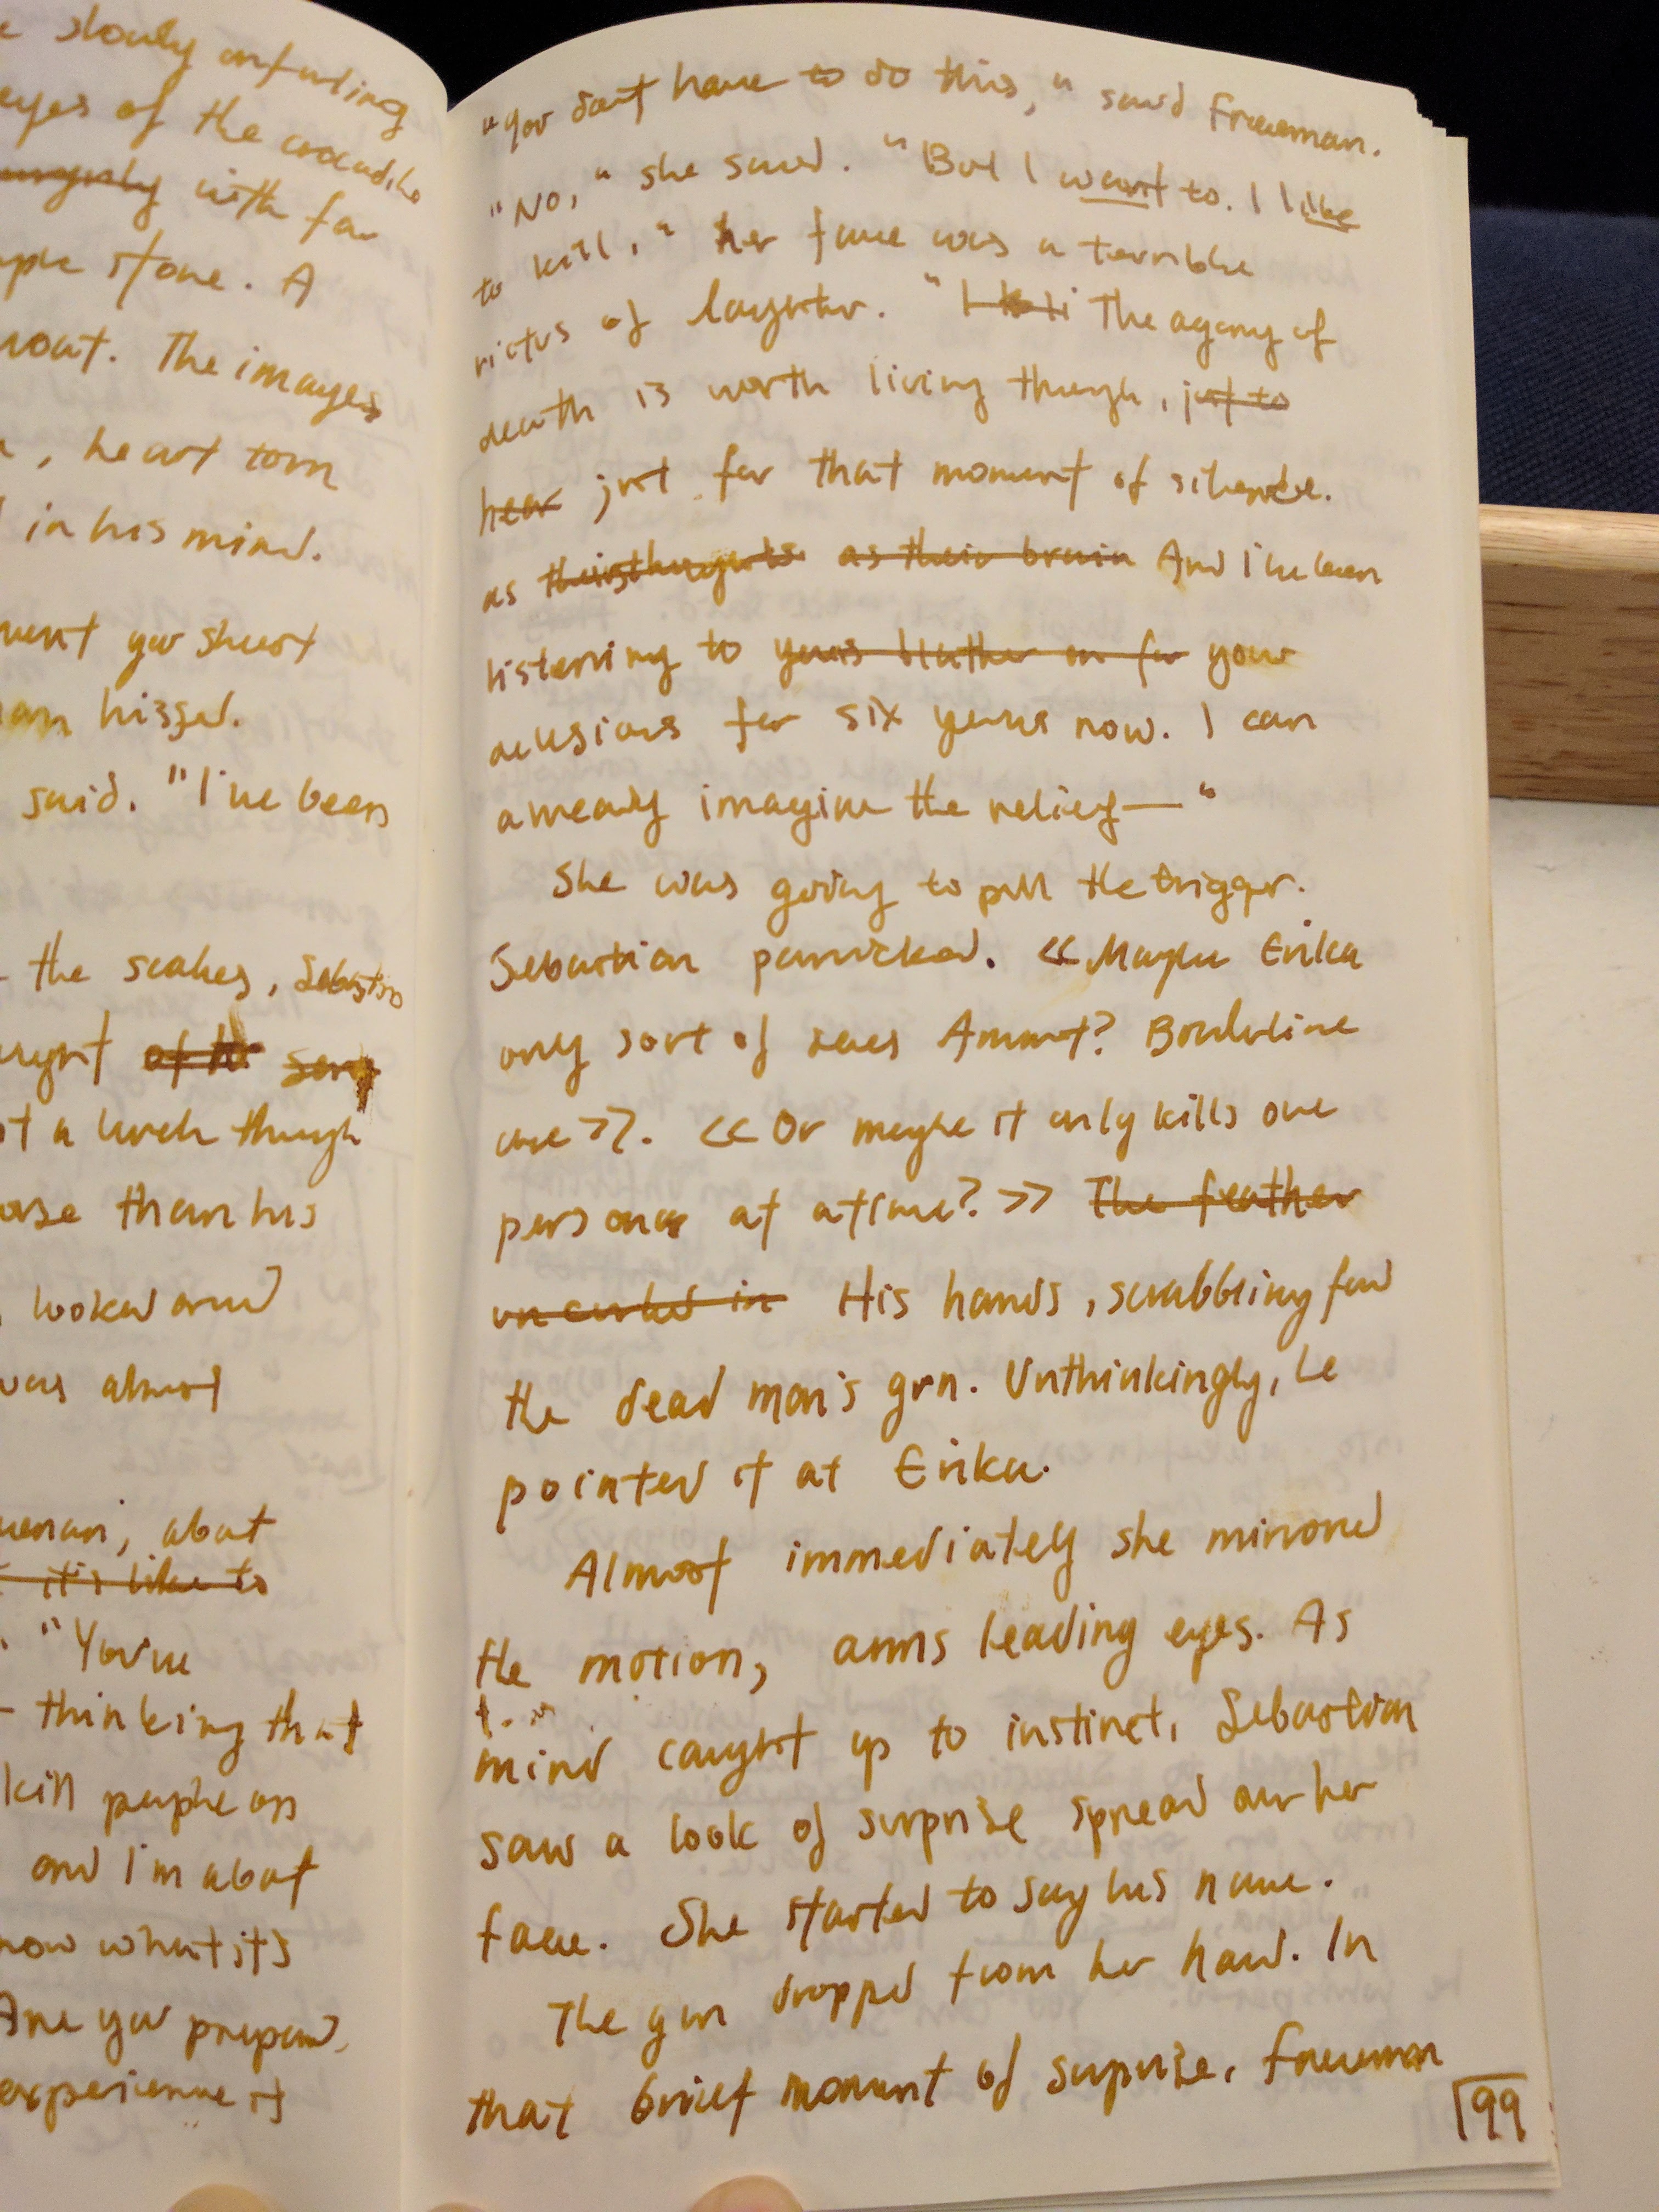 slowly unfurling
eyes of the crocodile
with far
stone. A
The images
, heart torn
in his mind.
you shoot
hissed.
said. "I've been
the scales, Sebastian
of the song
a lurch through
than his
looked and
was almost
, about
it's like to
"You've
thinking that
kill people on
and I'm about
now what it's
Are you prepared,
experience it
"You don't have to do this," said Freeman.
"No," she said. "But I want to. I like
to kill," her face was a terrible
rictus of laughter. "I The agony of
death is worth living through, just to
hear just for that moment of silence.
as their thoughts as their brain And I've been
listening to yours blather on for your
delusions for six years now. I can
already imagine the relief—"
She was going to pull the trigger.
Sebastian panicked. <<Maybe Erika
only sort of sees Ammut? Borderline
case>>. <<Or maybe it only kills one
person at a time?>> The feather
uncurled in His hands, scrabbling, found
the dead man's gun. Unthinkingly, he
pointed it at Erika.
Almost immediately she mirrored
the motion, arms leading eyes. As
mind caught up to instinct, Sebastian
saw a look of surprise spread over her
face. She started to say his name.
The gun dropped from her hand. In
that brief moment of surprise, Freeman
99